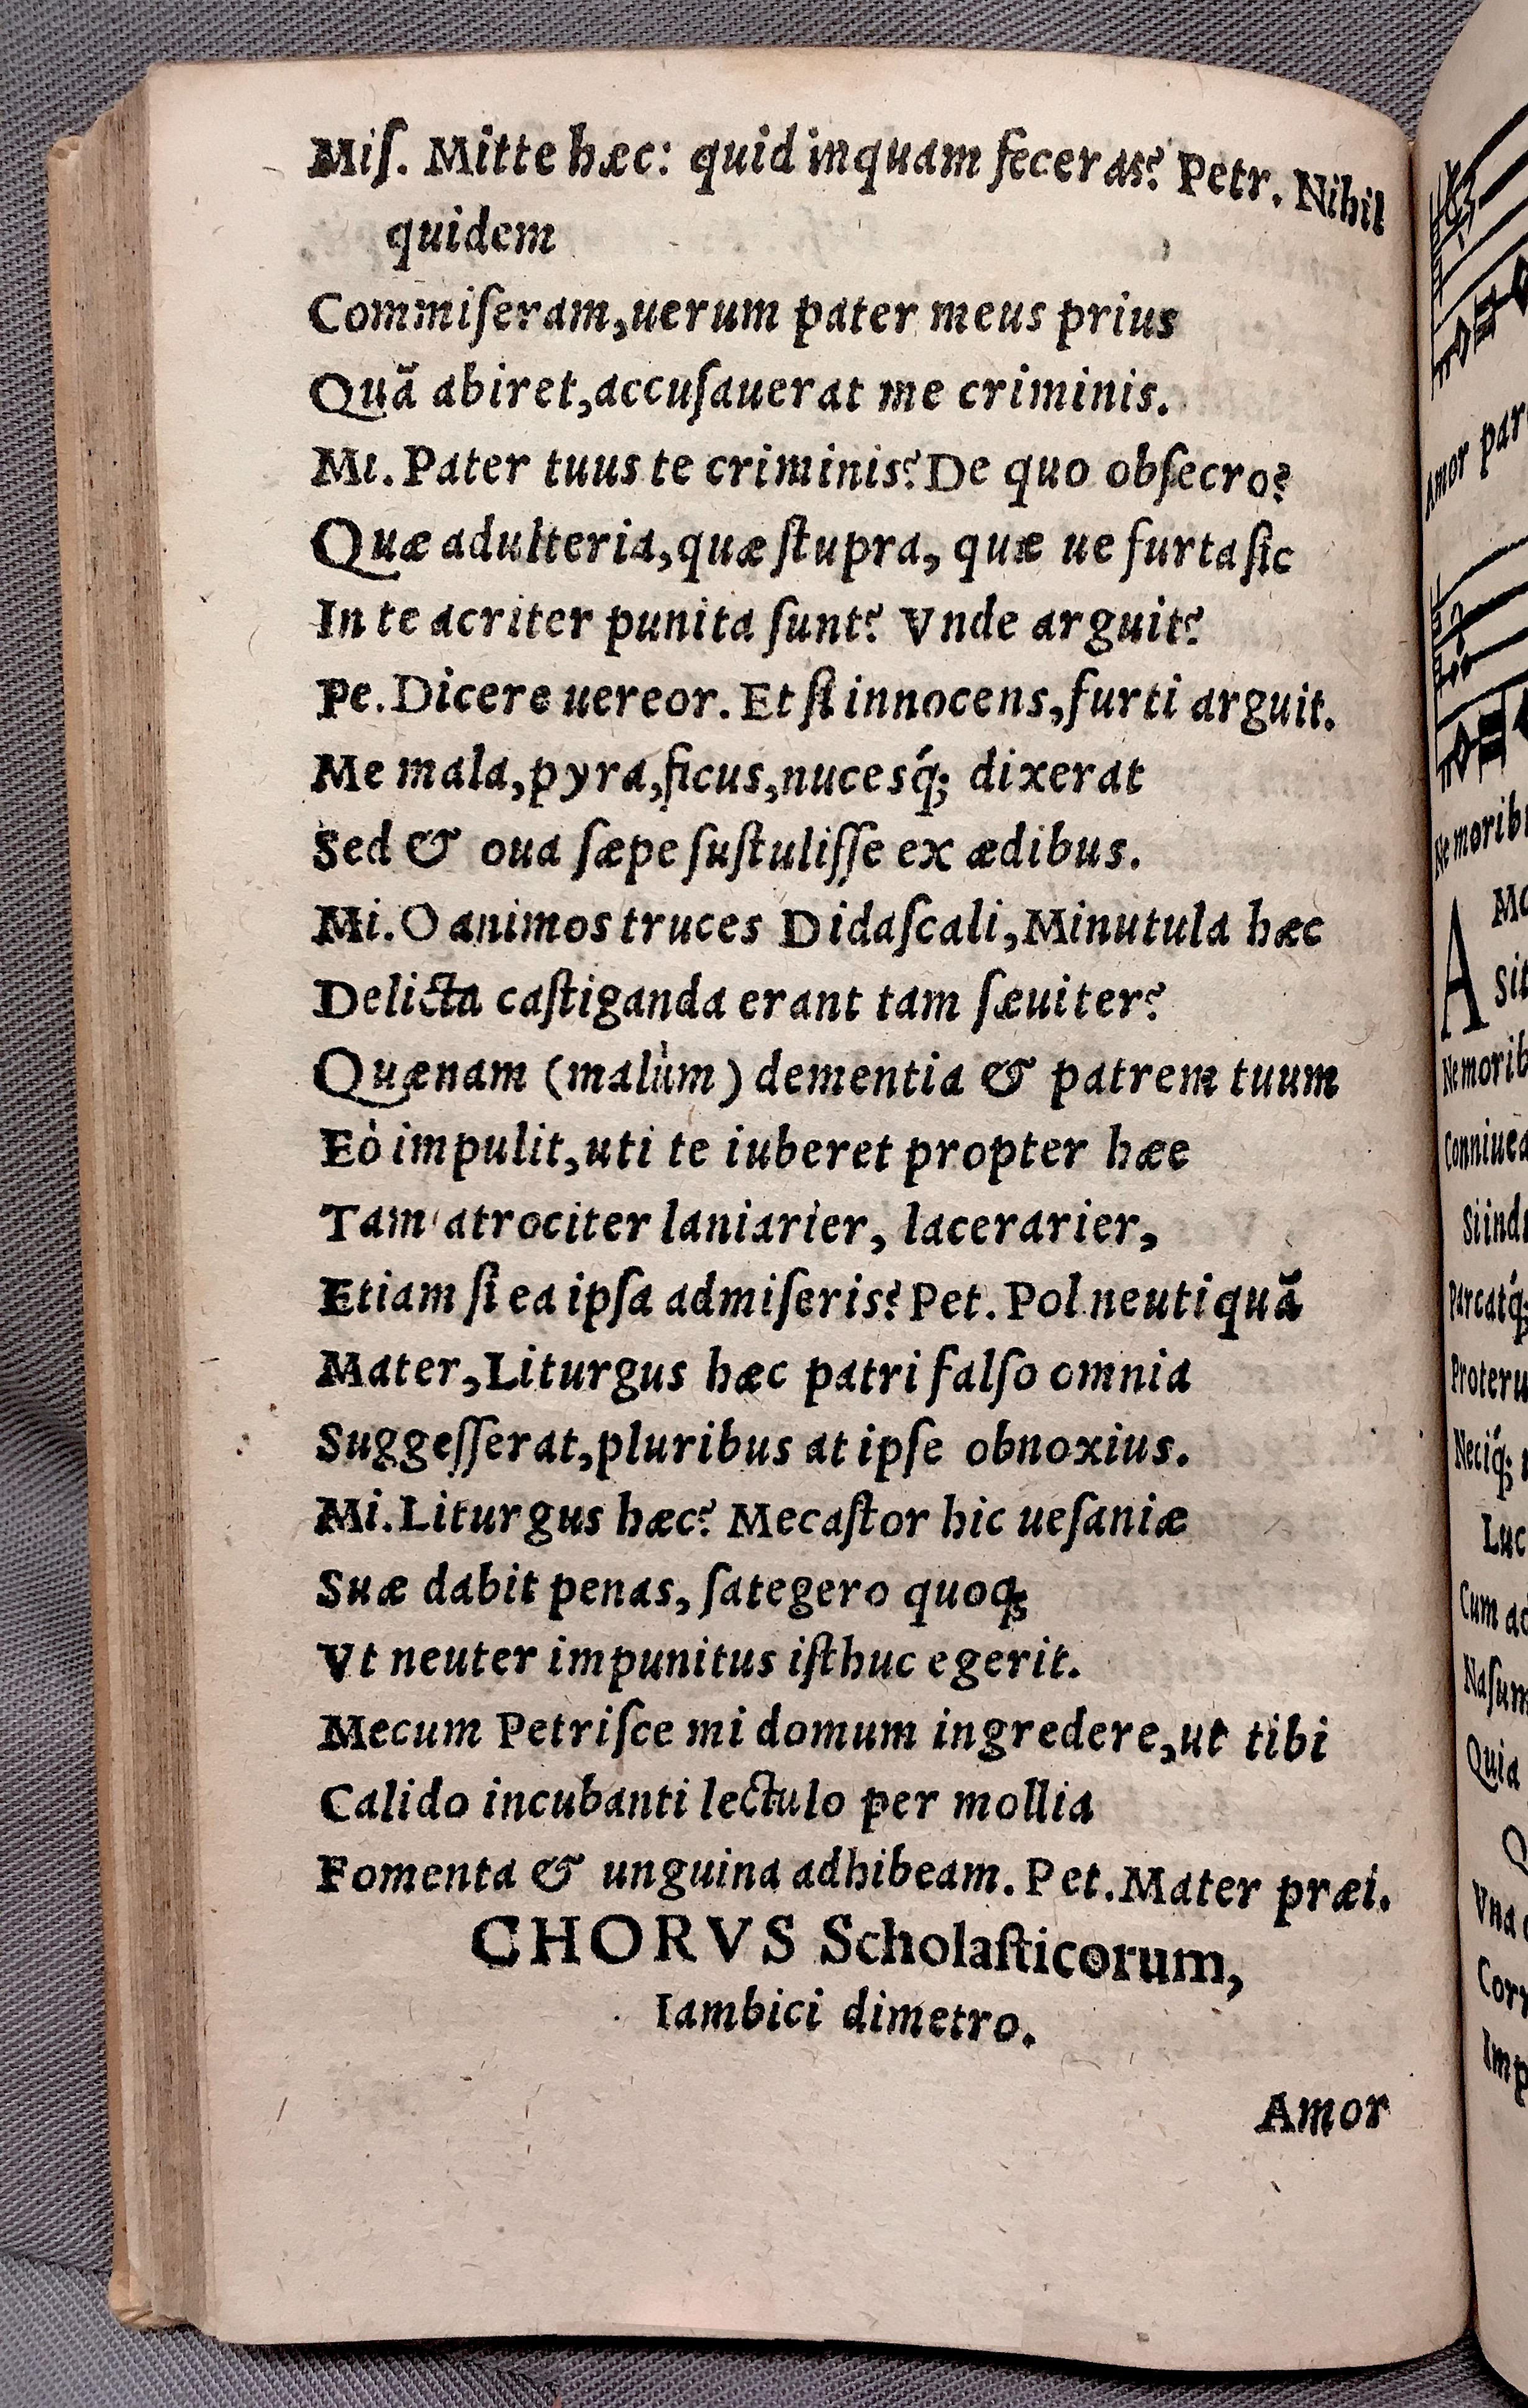 Miſ. Mitte hæc: quid inquam feceras? Petr. Nihil
quidem
Commiſeram, uerum pater meus prius
Quã abiret, accuſauerat me criminis.
Mi. Pater tuus te criminis? De quo obſecro?
Quæ adulteria, quæ ſtupra, quæ ue furta ſic
In te acriter punita ſunt? Vnde arguit?
Pe. Dicere uereor. Et ſi innocens, furti arguit.
Me mala, pyra, ficus, nucesq́; dixerat
Sed & oua ſæpe ſuſtuliſſe ex ædibus.
Mi. O animos truces Didaſcali, Minutula hæc
Delicta caſtiganda erant tam ſæuiter?
Quænam (malùm) dementia & patrem tuum
Eò impulit, uti te iuberet propter hæe
Tam atrociter laniarier, lacerarier,
Etiam ſi ea ipſa admiſeris? Pet. Pol neutiquã
Mater, Liturgus hæc patri falſo omnia
Suggeſſerat, pluribus at ipſe obnoxius.
Mi. Liturgus hæc? Mecaſtor hic ueſaniæ
Suæ dabit penas, ſategero quoq;
Vt neuter impunitus iſthuc egerit.
Mecum Petriſce mi domum ingredere, ut tibi
Calido incubanti lectulo per mollia
Fomenta & unguina adhibeam. Pet. Mater præi.
CHORVS Scholaſticorum,
Iambici dimetro.
Amor
Amor par
Nemoribu
A
Mo
sit
Nemorib
Conniuea
Si ind
Parcatq́;
Proteru
Neciq́;
Luc
Cum ad
Naſum
Quia
Q
Vna
Corr
Imp